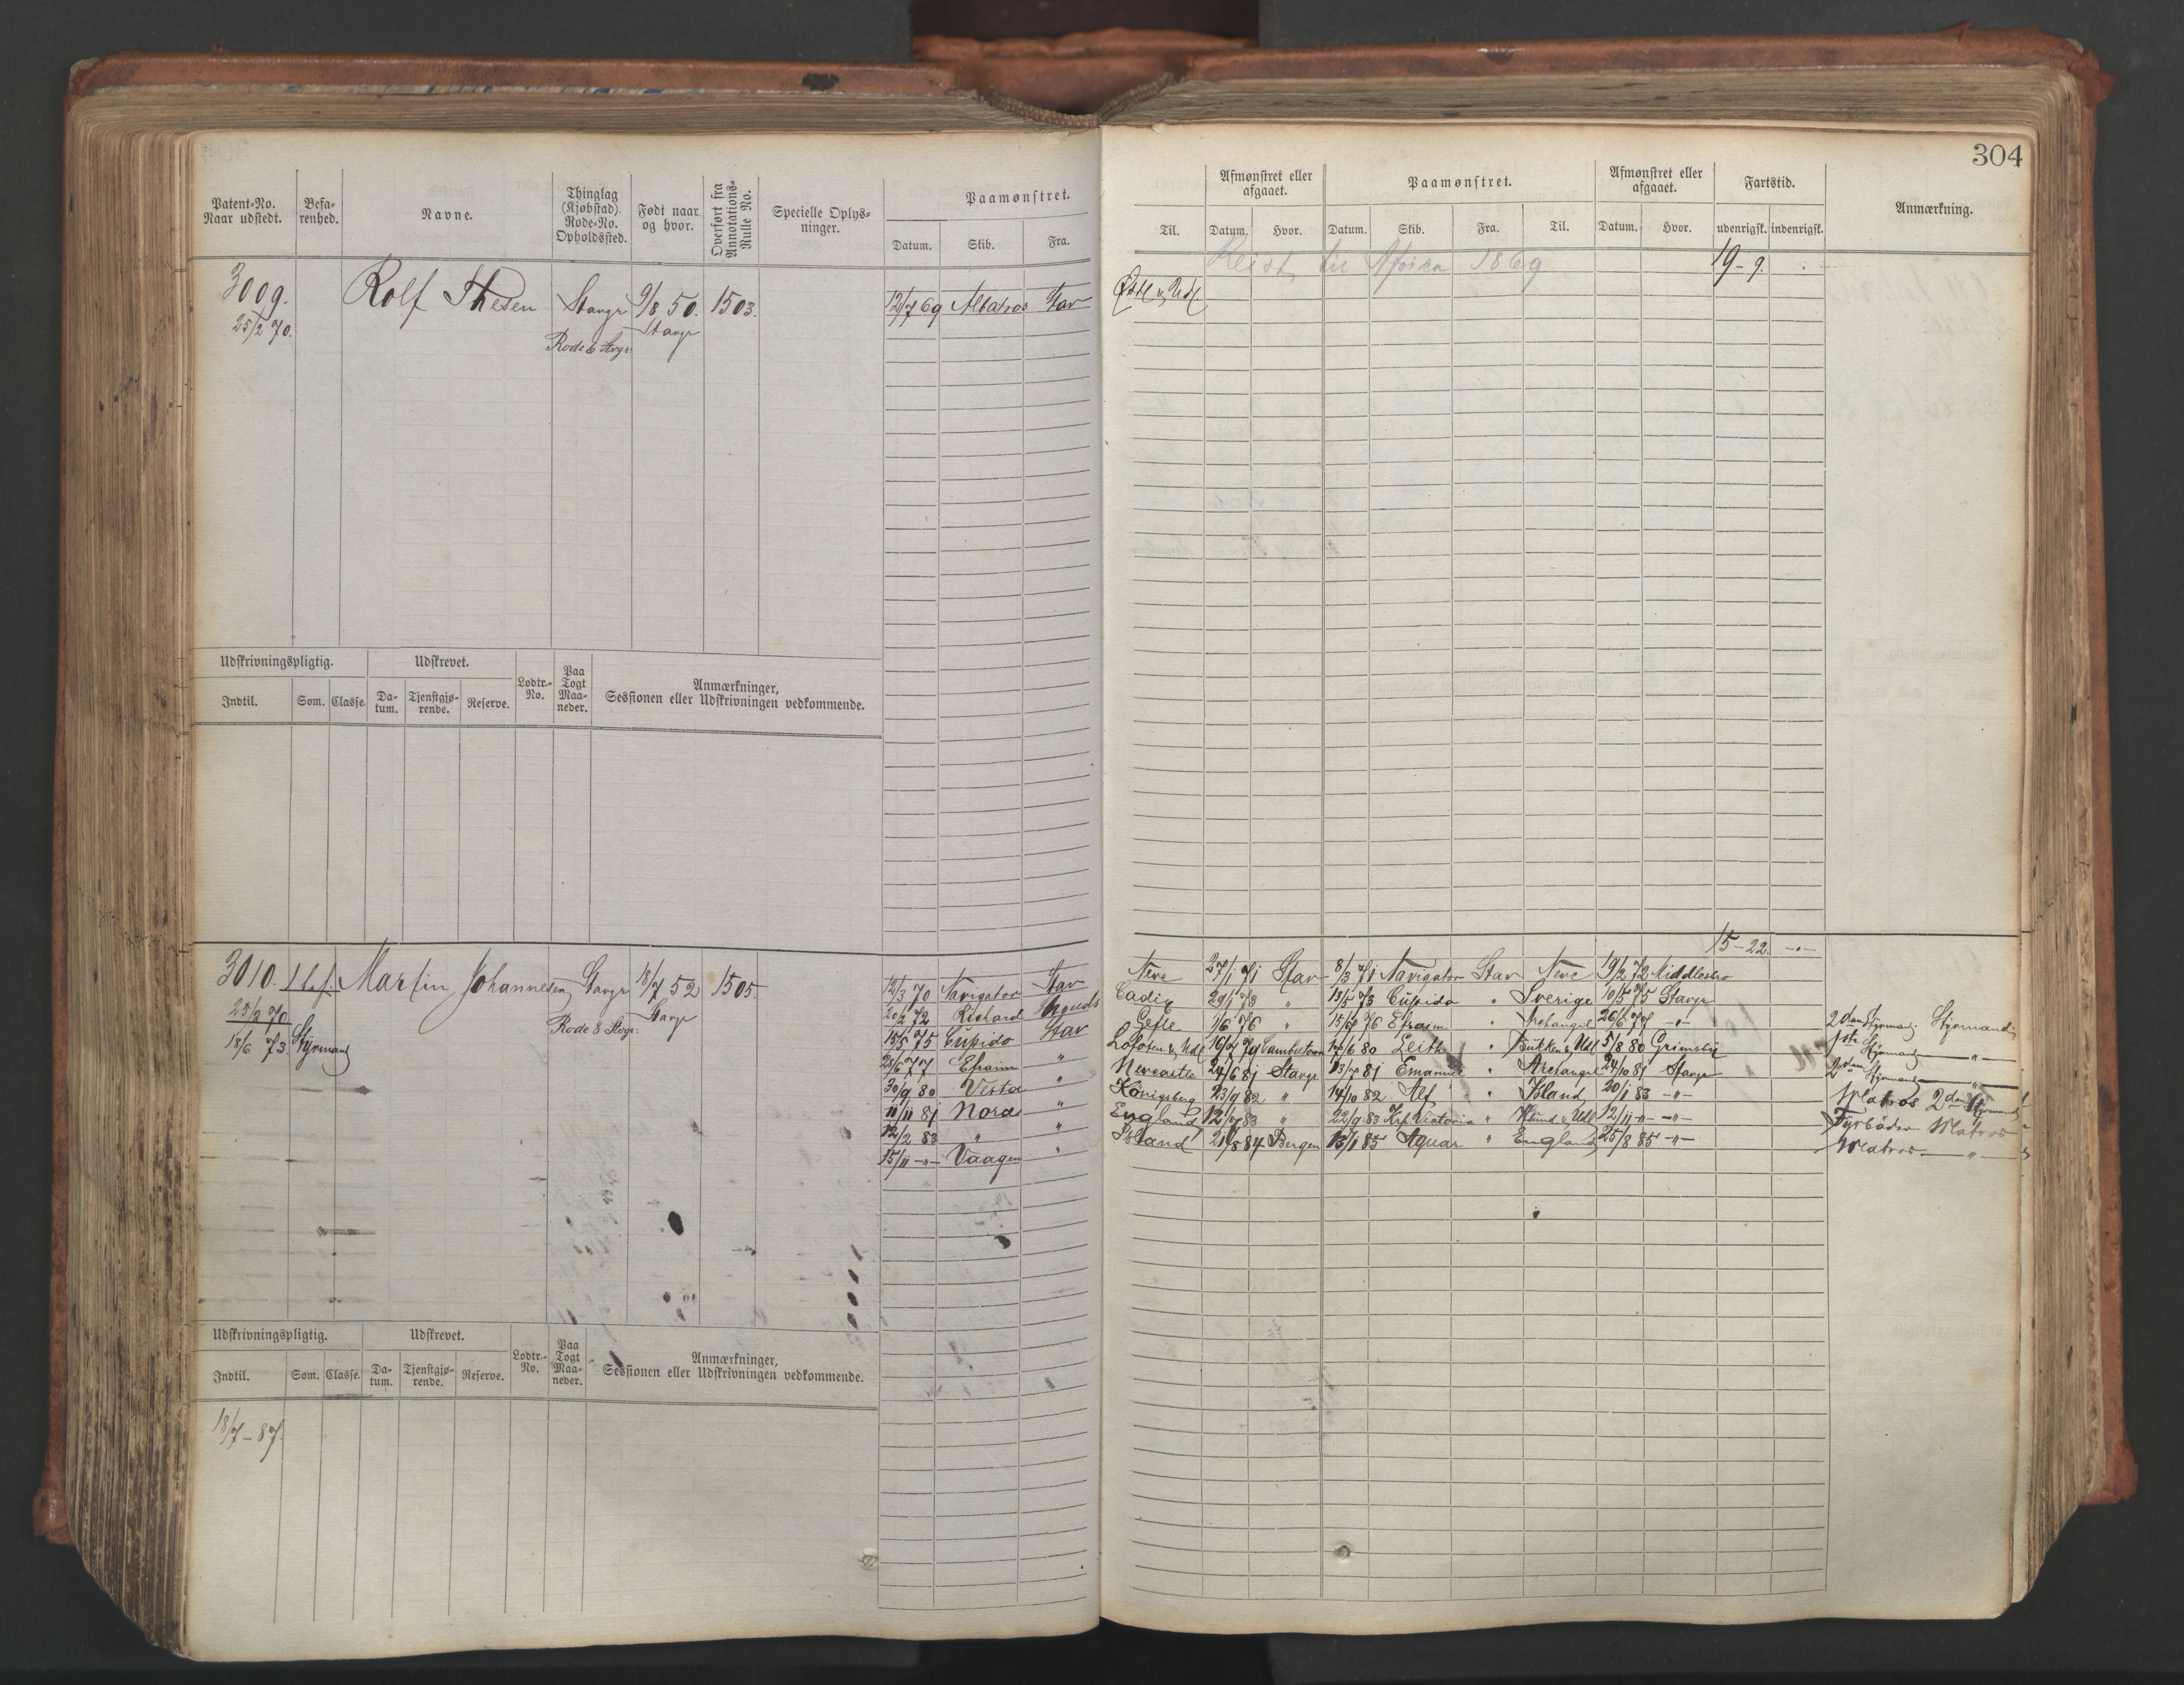 304
Patent-No. Naar udstedt.
Befarenhed.
Navne.
Thinglag (Kjøbstad). Rode-No. Opholdssted.
Født naar og hvor.
Overført fra Annotations-Rulle No.
Specielle Oplysninger.
Paamønstret.
Datum. Skib. Fra.
Til.
Afmønstret eller afgaaet.
Datum. Hvor.
Paamønstret.
Datum. Skib. Fra. Til.
Afmønstret eller afgaaet.
Datum. Hvor.
Fartstid.
udenrigsk. indenrigsk.
Anmærkning.
Reist til Africa 1869 19-9.
3009. Rolf Thesen Stavgr 9/8 50. 1503. 12/7 69 Albatros Stav
25/2 70. Stavgr
Rode 6 Stvgr.
Udskrivningspligtig. Udskrevet. Lodtr.-No. Paa Togt Maaneder. Anmærkninger, Sessionen eller Udskrivningen vedkommende.
Indtil. Som. Classe. Datum. Tjenstgjørende. Reserve.
15-22.
3010. Martin Johannesen Stavgr 18/7 52 1505.
25/2 70 Rode 8 Stvgr. Stavgr
18/6 73. Styrmand
12/3 70 Navigator Stav Neve 27/1 71 Stav 8/3 71 Navigator Stav Neve 19/2 72 Middlesbro
20/2 72 Richard Cadix 29/1 73 " 13/5 73 Cupido " Sverige 10/5 75 Stavgr
15/5 75 Cupido Stav Gefle 1/6 76 " 15/6 76 Efraim " Archangel 26/6 77 -"- 2den Styrmand. Styrmand
23/6 77 Efraim " Lofoten & Udl 16/7 79 17/6 80 Leith " Bukken & Udl 5/8 80 Grimsby 1ste Styrmand -"-
30/9 80 Vesta " Newcastle 24/6 81 Stavgr 13/7 81 Emanuel " Archangel 24/10 81 Stavgr 2den Styrmand -"-
11/11 81 Nora " Königsberg 23/9 82 " 14/10 82 Alf " Island 20/1 83 -"- Matros 2den Styrmand
12/2 83 " " England 12/7 83 " 22/9 83 Victoria " 12/11 -"- -"- Fyrbøder Matros
15/11 -"- Vaagen " Island 21/8 84 Bergen 13/1 85 Aquar " England 25/8 85 -"- Matros -"-
Udskrivningspligtig. Udskrevet. Lodtr.-No. Paa Togt Maaneder. Anmærkninger, Sessionen eller Udskrivningen vedkommende.
Indtil. Som. Classe. Datum. Tjenstgjørende. Reserve.
18/7-87.